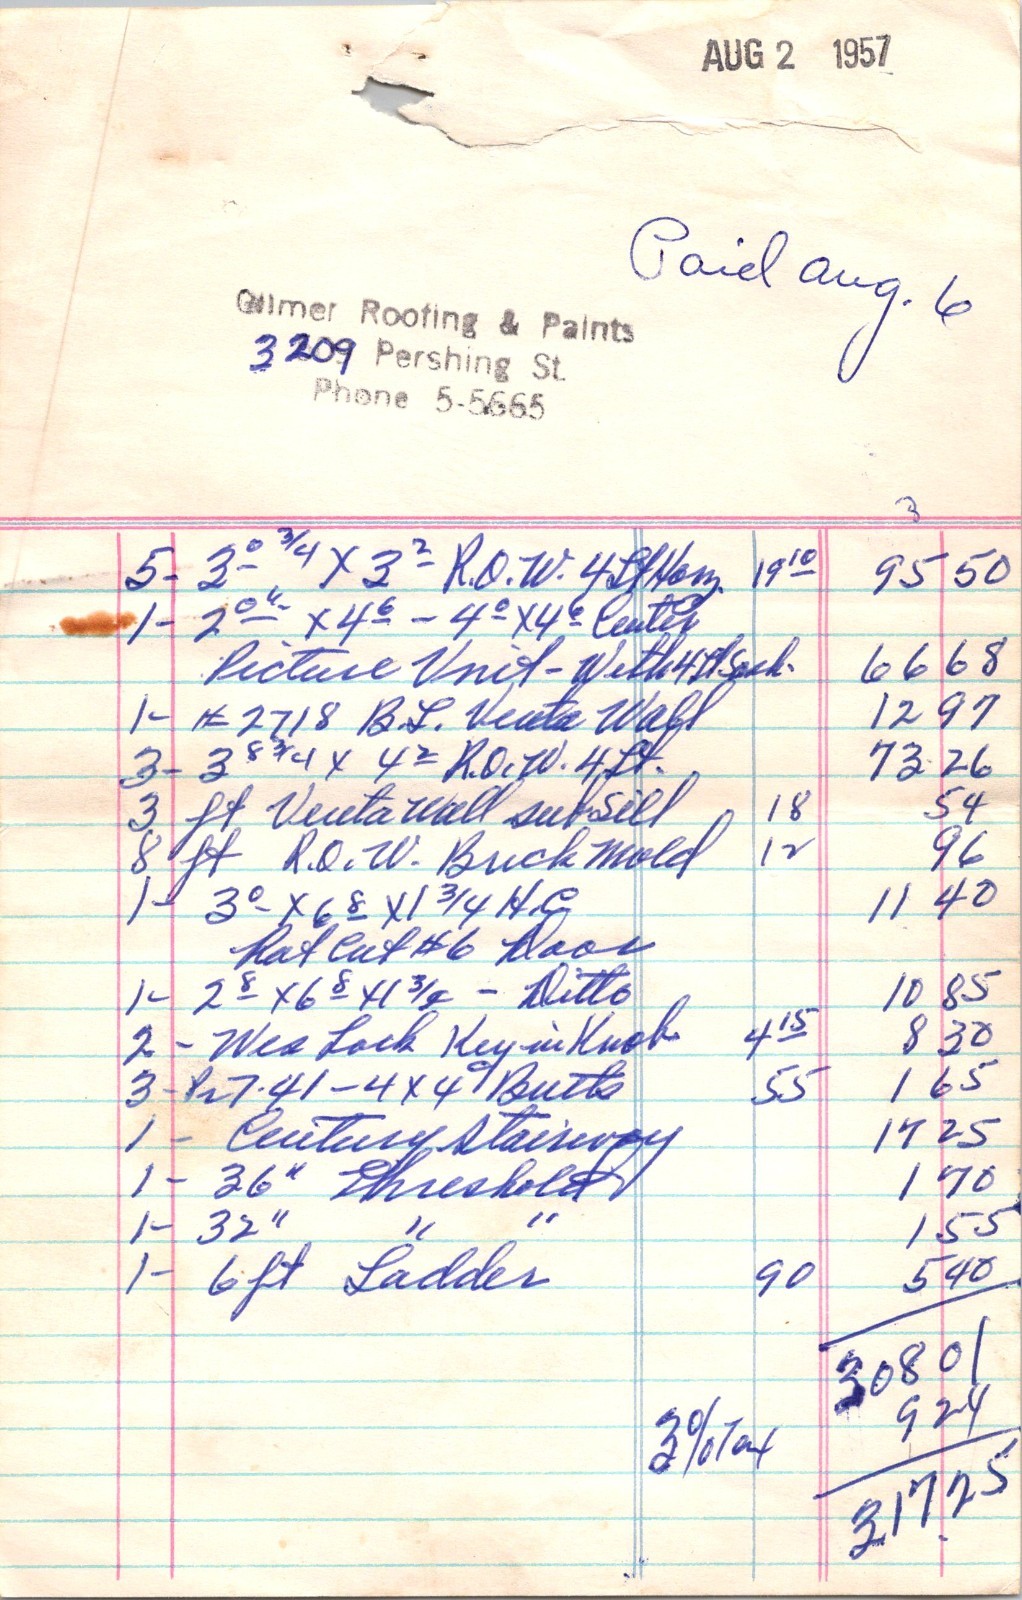 AUG 2 1957
Paid Aug. 6
Gilmer Roofing & Paints
3209 Pershing St.
Phone 5-5665
3
5- 3⁰ 3/4 X 3² R.O.W. 4 Lt Horz. 19¹⁰ 95 50
1- 2⁰ 4" X 4⁶ - 4⁰ X 4⁶ Center
Picture Unit - With 4 Lt. Sash. 66 68
1- #2718 B.L. Venta Wall 12 97
3- 3⁸ 3/4 X 4² R.O.W. 4 Lt. 73 26
3 ft Venta Wall sub Sill 18 54
8 ft R.O.W. Brick Mold 12 96
1- 3⁰ X 6⁸ X 1 3/4 H.C. 11 40
#6 Door
1- 2⁸ X 6⁸ X 1 3/4 - Ditto 10 85
2 - Wes Lock Key in Knob 4¹⁵ 8 30
3- Pr 741 - 4 X 4 Butts 55 1 65
1 - Century Stairway 17 25
1 - 36" Threshold 1 70
1- 32" " " 1 55
1- 6 ft Ladder 90 5 40
308 01
3% Tax 9 24
317.25